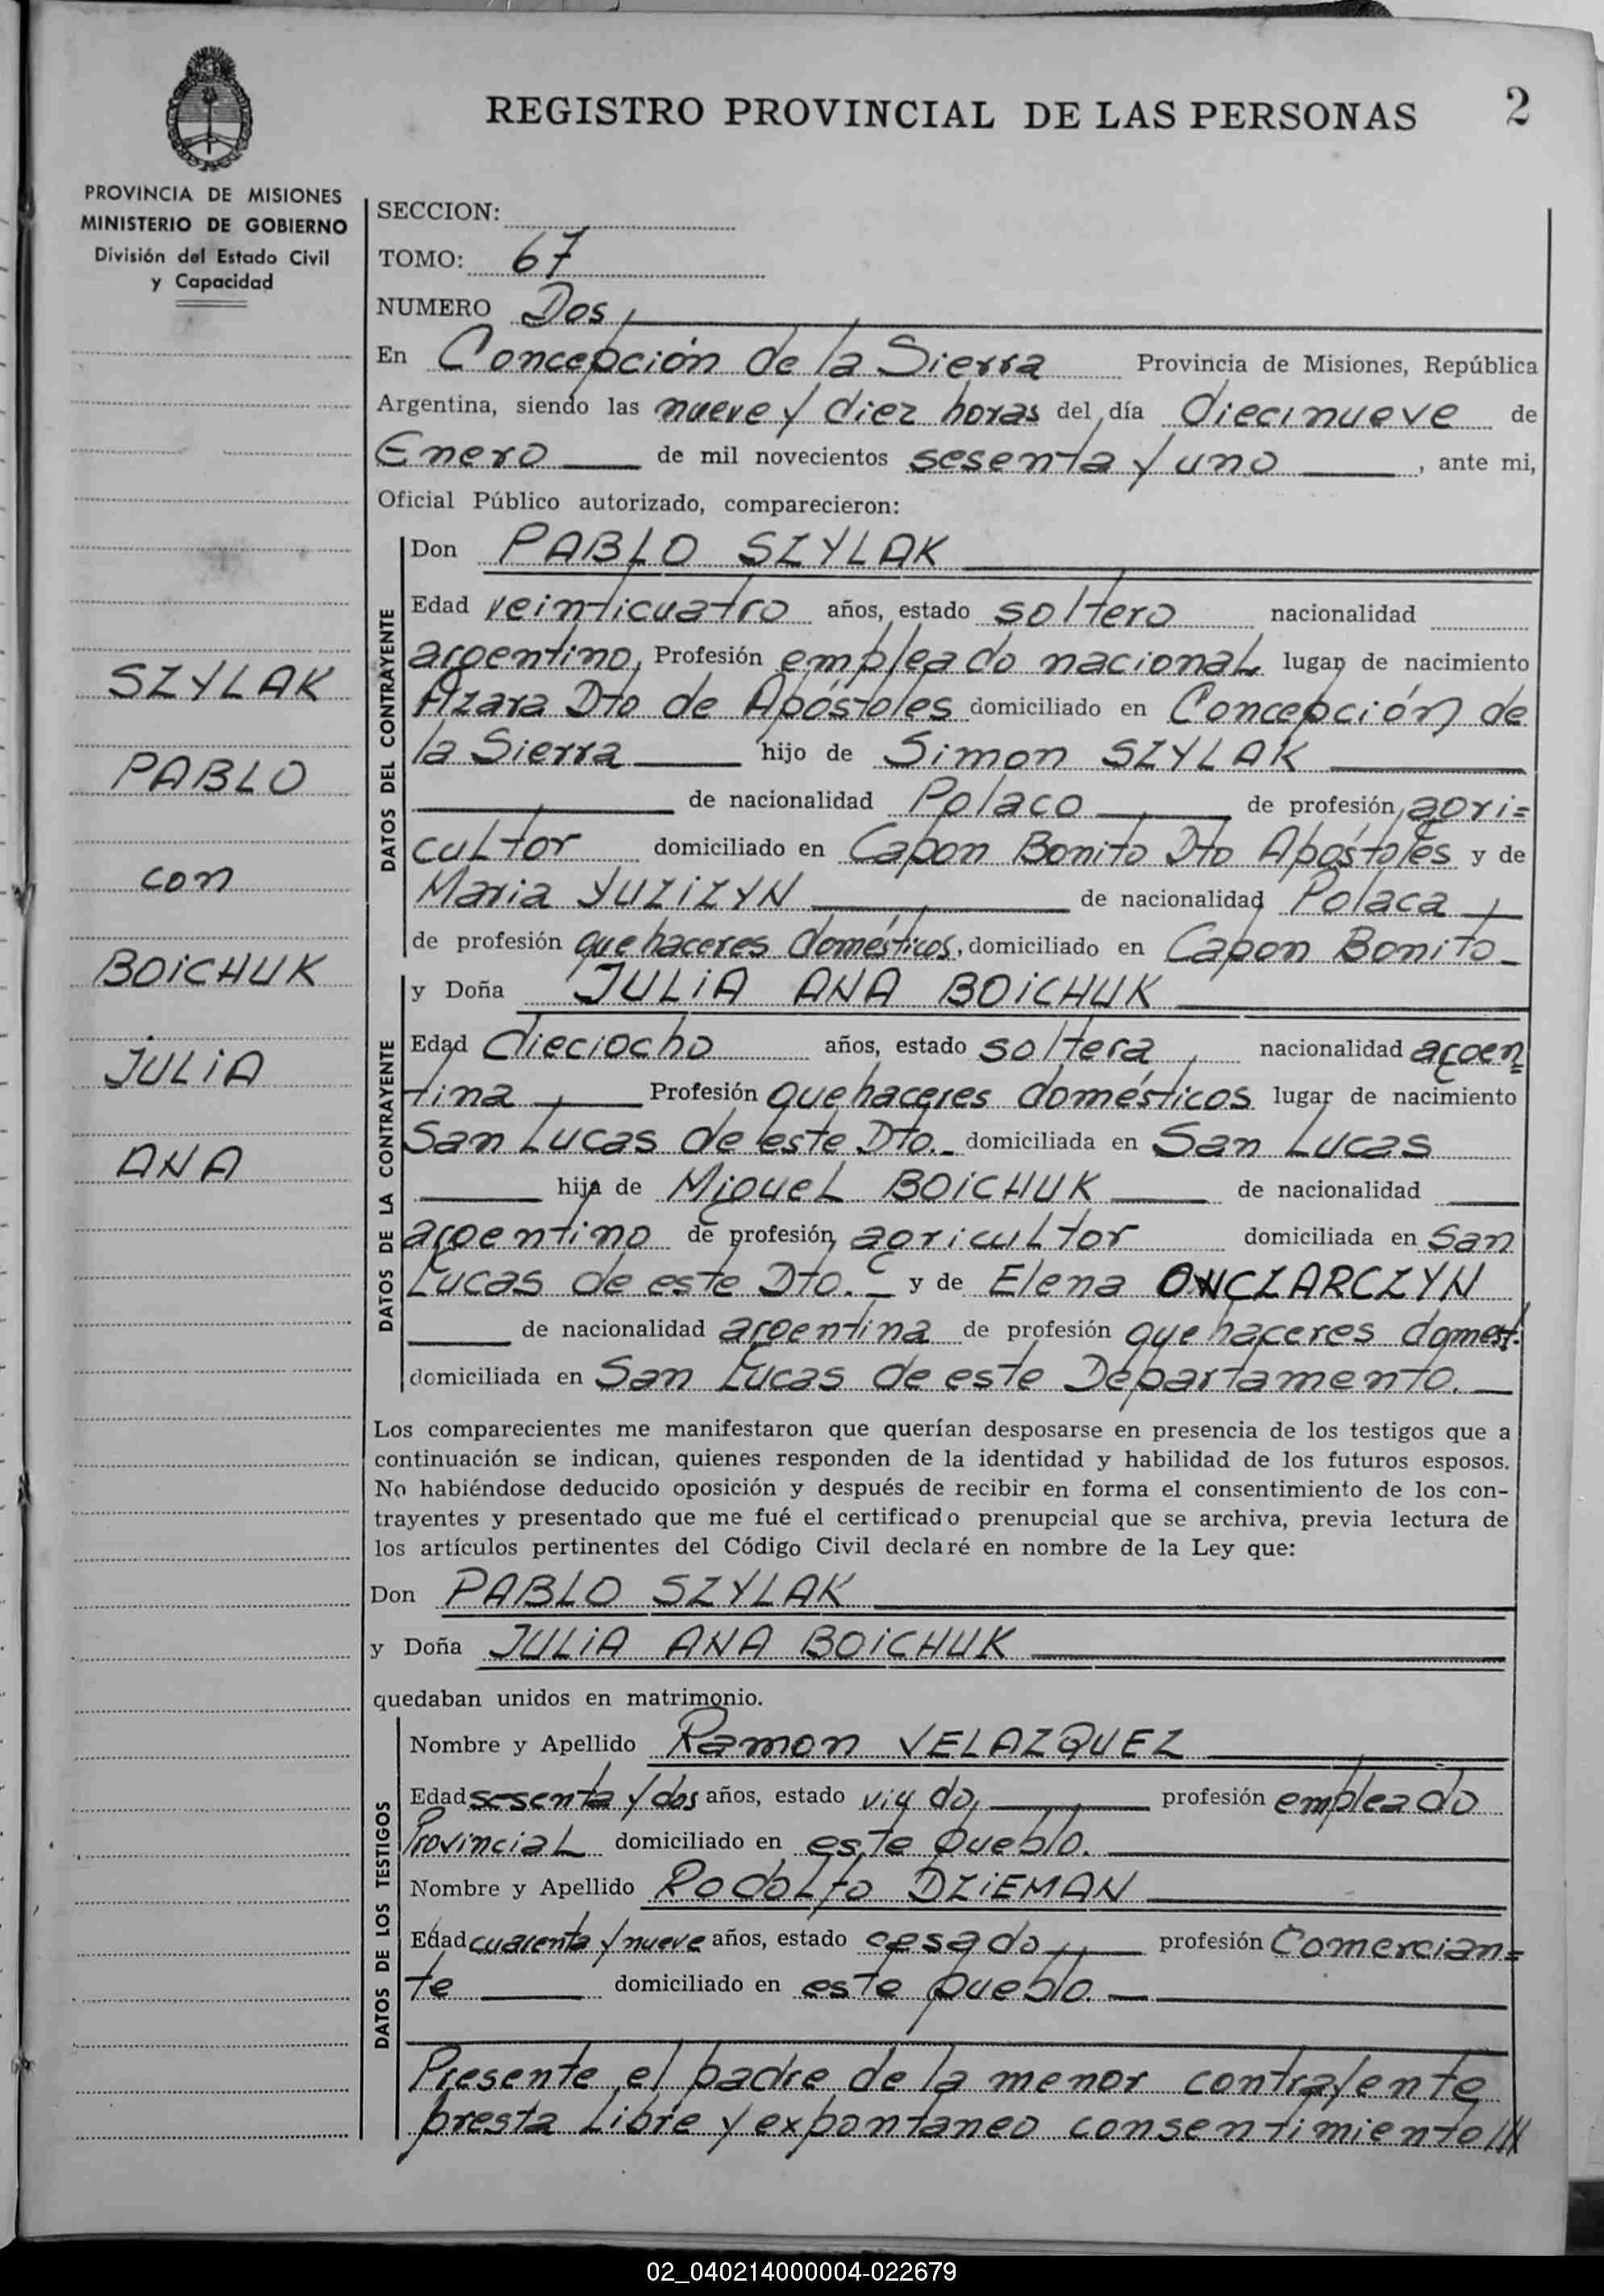 REGISTRO PROVINCIAL DE LAS PERSONAS 2
PROVINCIA DE MISIONES
MINISTERIO DE GOBIERNO
División del Estado Civil
y Capacidad
SZYLAK
PABLO
con
BOICHUK
JULIA
ANA
SECCION:
TOMO: 67
NUMERO Dos
En Concepción de la Sierra Provincia de Misiones, República
Argentina, siendo las nueve y diez horas del día diecinueve de
Enero de mil novecientos sesenta y uno , ante mi,
Oficial Público autorizado, comparecieron:
DATOS DEL CONTRAYENTE
Don PABLO SZYLAK
Edad veinticuatro años, estado soltero nacionalidad
argentino, Profesión empleado nacional lugar de nacimiento
Azara Dto de Apóstoles domiciliado en Concepción de
la Sierra hijo de Simon SZYLAK
de nacionalidad Polaco de profesión agri=
cultor domiciliado en Capon Bonito Dto Apóstoles y de
Maria YUZIZYN de nacionalidad Polaca
de profesión quehaceres domésticos, domiciliado en Capon Bonito
DATOS DE LA CONTRAYENTE
y Doña JULIA ANA BOICHUK
Edad dieciocho años, estado soltera, nacionalidad argen=
tina Profesión quehaceres domésticos lugar de nacimiento
San Lucas de este Dto.- domiciliada en San Lucas
hija de Miguel BOICHUK de nacionalidad
argentino de profesión agricultor domiciliada en San
Lucas de este Dto.- y de Elena ONCZARCZYN
de nacionalidad argentina de profesión quehaceres domest.
domiciliada en San Lucas de este Departamento.
Los comparecientes me manifestaron que querían desposarse en presencia de los testigos que a
continuación se indican, quienes responden de la identidad y habilidad de los futuros esposos.
No habiéndose deducido oposición y después de recibir en forma el consentimiento de los con-
trayentes y presentado que me fué el certificado prenupcial que se archiva, previa lectura de
los artículos pertinentes del Código Civil declaré en nombre de la Ley que:
Don PABLO SZYLAK
y Doña JULIA ANA BOICHUK
quedaban unidos en matrimonio.
DATOS DE LOS TESTIGOS
Nombre y Apellido Ramon VELAZQUEZ
Edad sesenta y dos años, estado viudo, profesión empleado
Provincial domiciliado en este pueblo.
Nombre y Apellido Rodolfo DZIEMAN
Edad cuarenta y nueve años, estado casado, profesión Comercian=
te domiciliado en este pueblo.
Presente el padre de la menor contrayente
presta libre y expontaneo consentimiento///
02_040214000004-022679